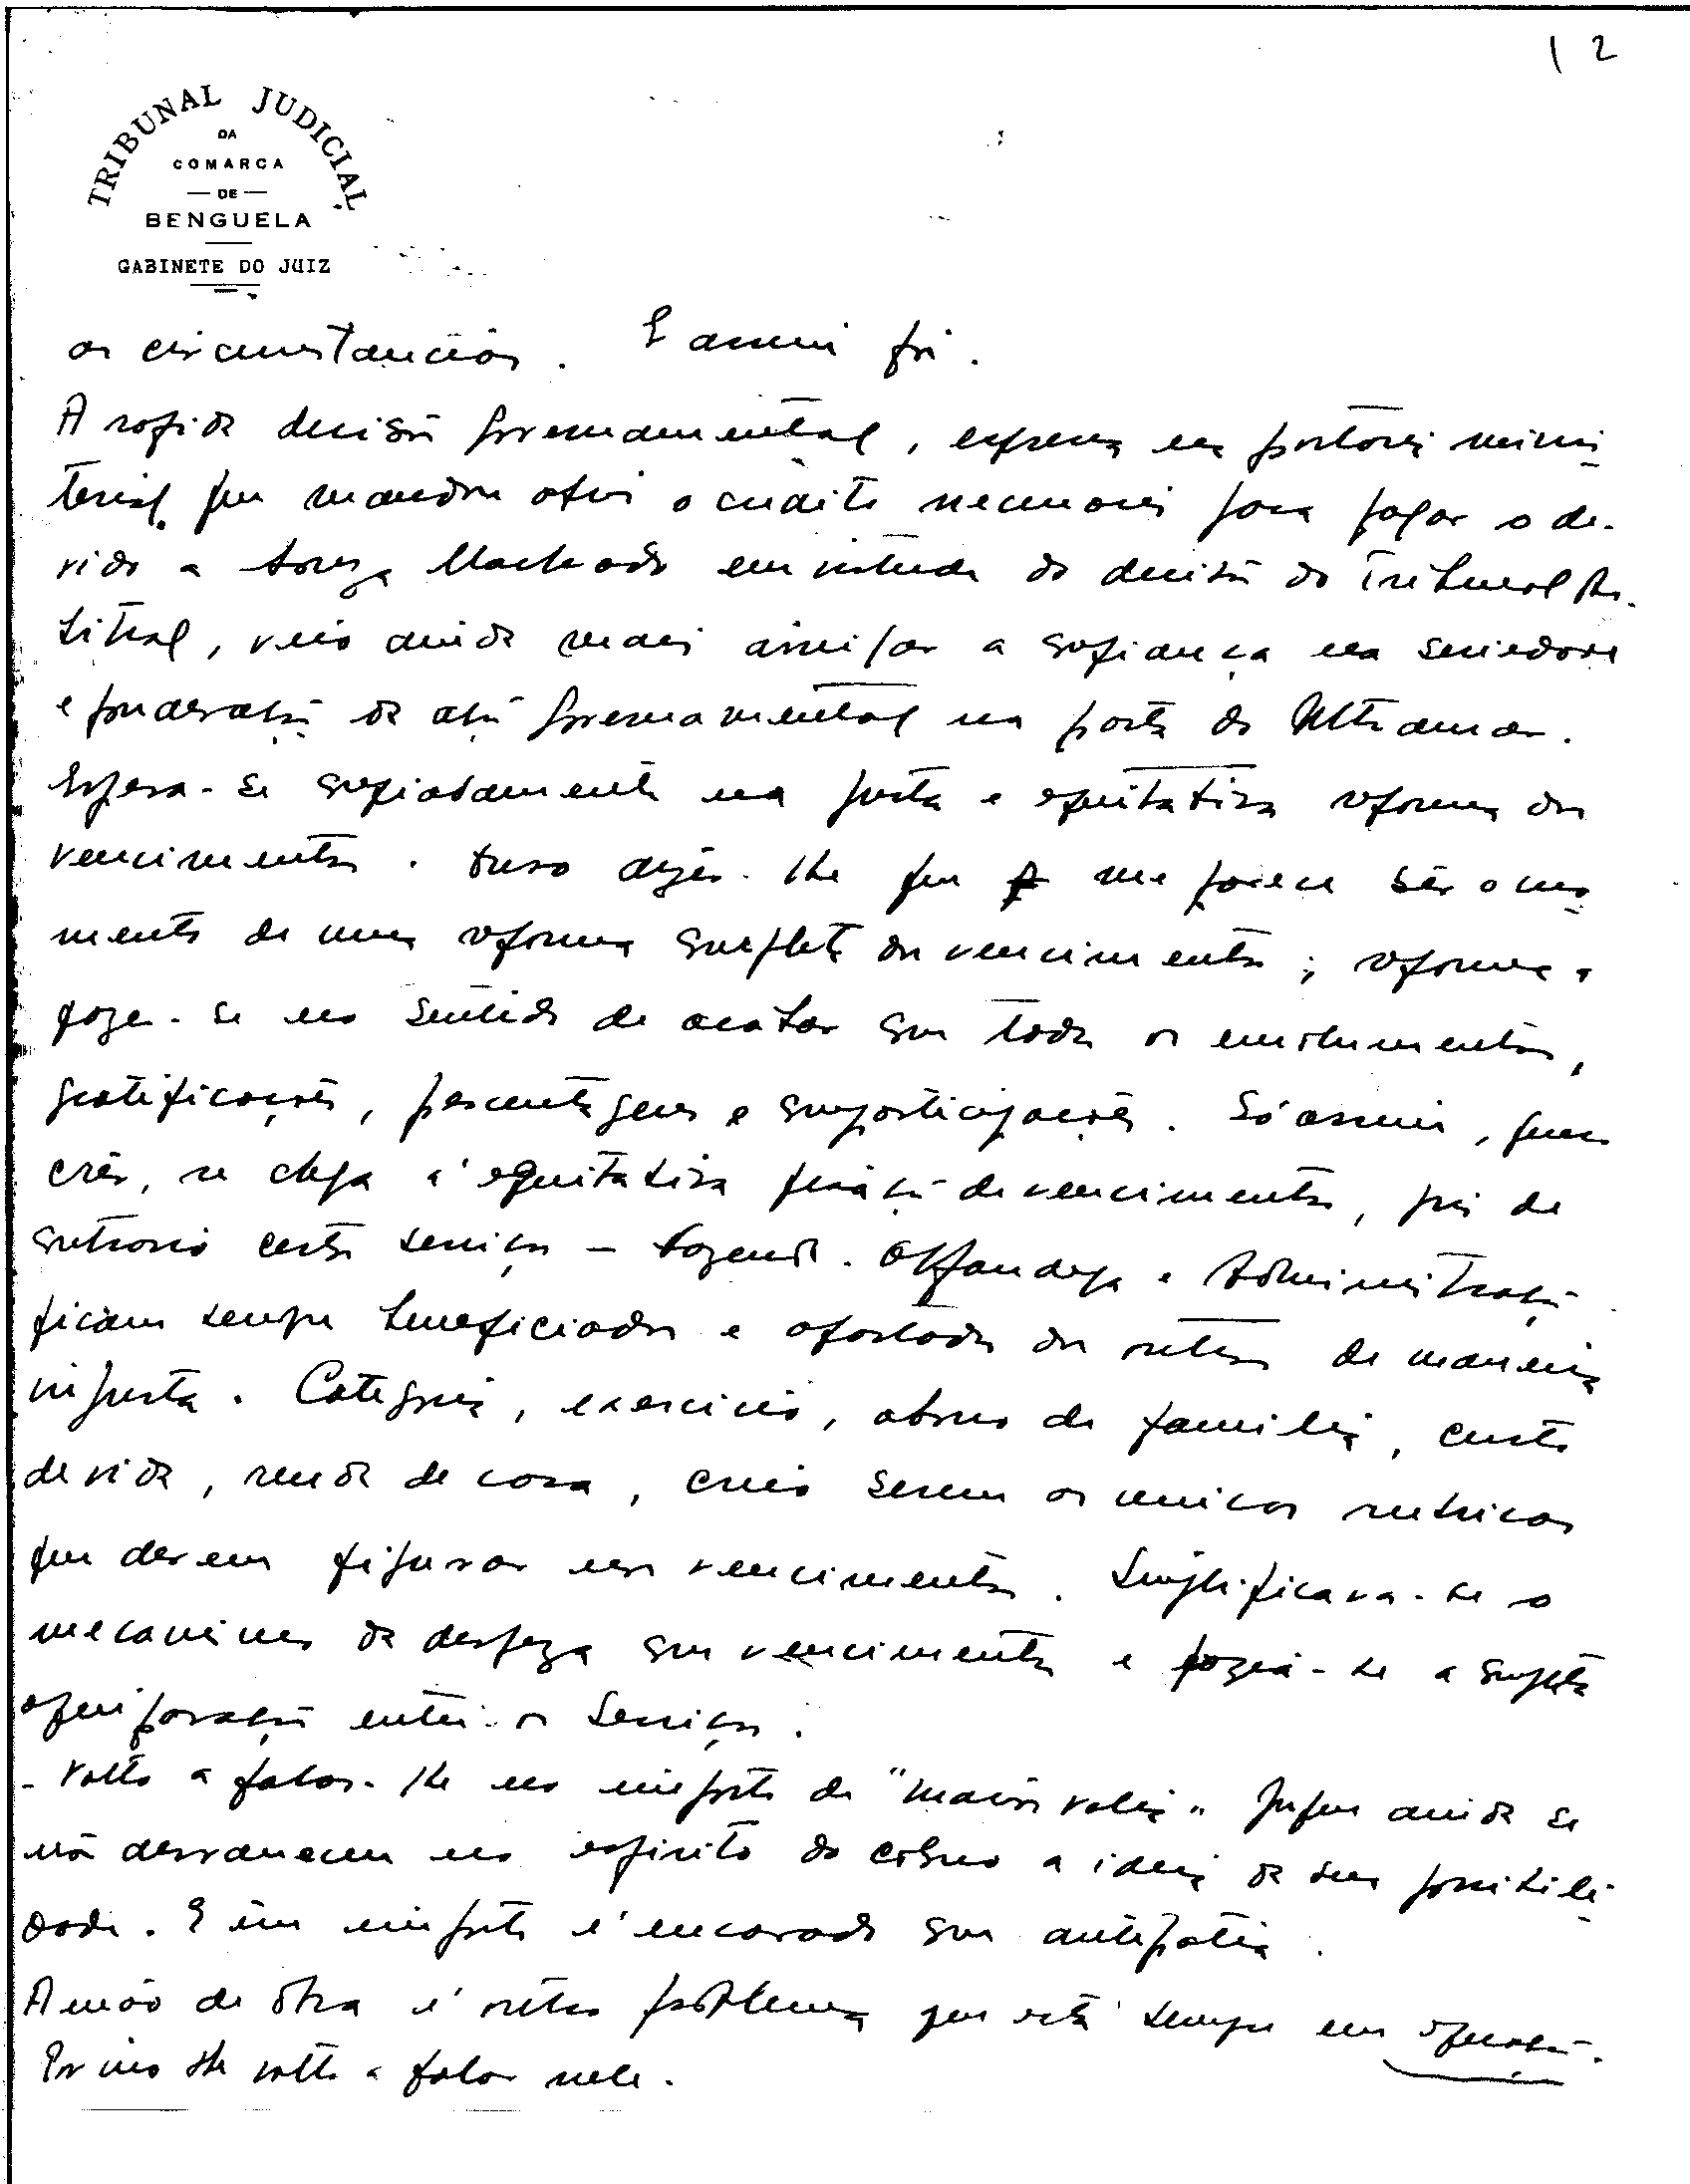 12
TRIBUNAL JUDICIAL
DA
COMARCA
— DE —
BENGUELA
GABINETE DO JUIZ
as circunstancias. E assim foi.
A rapida decisão governamental, expressa em portaria minis
terial que mandou abrir o credito necessario para pagar o de-
vido a Souza Machado em virtude da decisão do Tribunal Ar-
bitral, veio ainda mais a confiança na seriedade
e ponderação da ação governamental na pasta do Ultramar.
Espera-se confiadamente na justa e equitativa reforma dos
vencimentos. Devo dizer-lhe que me parece ser o mo
mento de uma reforma completa dos vencimentos; reforma a
fazer-se no sentido de acabar com todos os emolumentos,
gratificações, percentagens e comparticipações. Só assim,
creio, se chega á equitativa fixação de vencimentos, pois de
contrario certos serviços – Fazenda. Alfandega e Administração
ficam sempre beneficiados e afastados dos outros de maneira
injusta. Categoria, exercicio, abono de familia, custo
de vida, renda de casa, creio serem as unicas rubricas
que devem figurar nos vencimentos. Simplificava-se o
mecanismo da despeza com vencimentos e fazia-se a completa
equiparação entre os Serviços.
- Volto a falar-lhe no imposto de "maior valia". Julgo ainda se
não desvaneceu no espirito do colono a ideia da sua possibili
dade. E êm imposto é encarado com antipatia.
A mão de obra é outro problema que está sempre em equação.
Por isso lhe volto a falar nele.